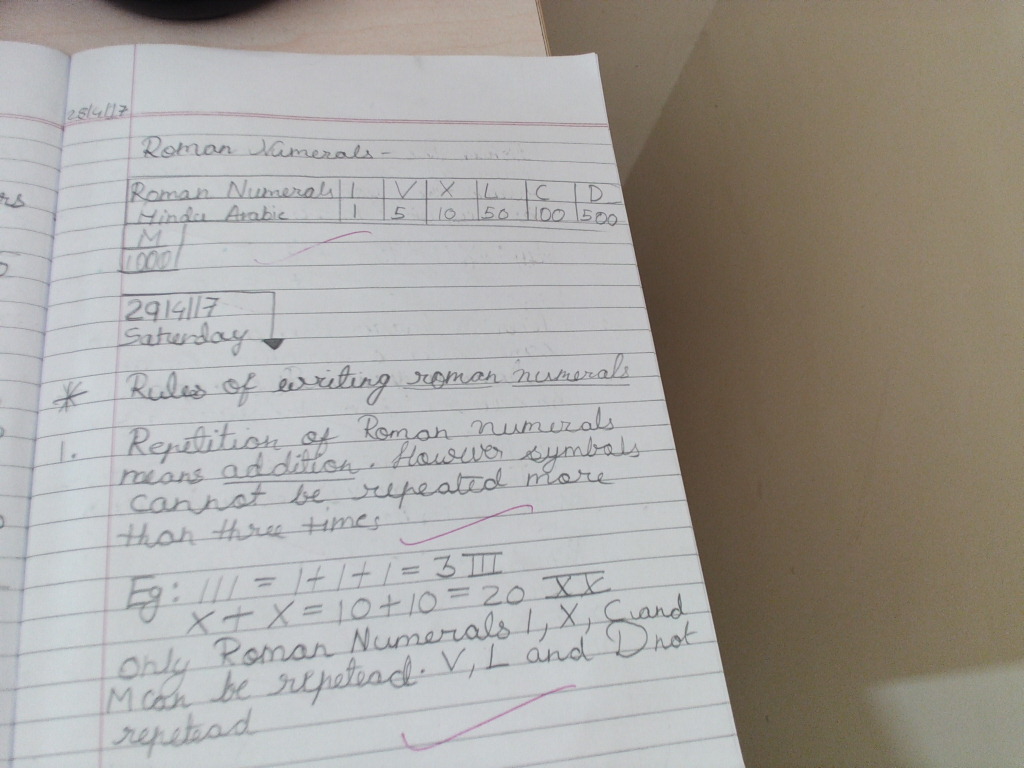 28/4/17
Roman Numerals -
Roman Numerals | I | V | X | L | C | D
Hindu Arabic | 1 | 5 | 10 | 50 | 100 | 500
M
1000
29/4/17
Saturday
* Rules of writing roman numerals
1. Repetition of Roman numerals
means addition. However symbols
cannot be repeated more
than three times
Eg: III = 1+1+1 = 3 III
X + X = 10+10 = 20 XX
only Roman Numerals I, X, C and
M can be repetead. V, L and D not
repetead
rs
5